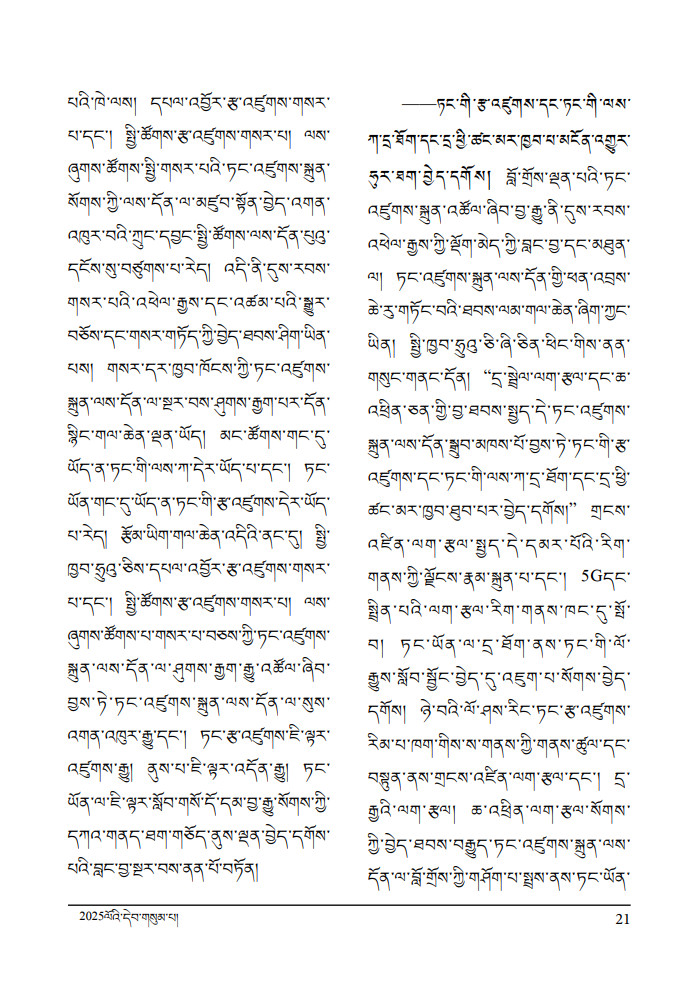 པའི་ཁེ་ལས། དཔལ་འབྱོར་རྩ་འཛུགས་གསར་
པ་དང་། སྤྱི་ཚོགས་རྩ་འཛུགས་གསར་པ། ལས་
ཞུགས་ཚོགས་སྤྱི་གསར་པའི་ཏང་འཛུགས་སྐྲུན་
སོགས་ཀྱི་ལས་དོན་ལ་མཛུབ་སྟོན་བྱེད་འགན་
འཁུར་བའི་ཀྲུང་དབྱང་སྤྱི་ཚོགས་ལས་དོན་པུའུ་
དངོས་སུ་བཙུགས་པ་རེད། འདི་ནི་དུས་རབས་
གསར་པའི་འཕེལ་རྒྱས་དང་འཚམ་པའི་སྒྱུར་
བཅོས་དང་གསར་གཏོད་ཀྱི་བྱེད་ཐབས་ཤིག་ཡིན་
པས། གསར་དར་ཁྱབ་ཁོངས་ཀྱི་ཏང་འཛུགས་
སྐྲུན་ལས་དོན་ལ་སྔར་བས་ཤུགས་རྒྱག་པར་དོན་
སྙིང་གལ་ཆེན་ལྡན་ཡོད། མང་ཚོགས་གང་དུ་
ཡོད་ན་ཏང་གི་ལས་ཀ་དེར་ཡོད་པ་དང་། ཏང་
ཡོན་གང་དུ་ཡོད་ན་ཏང་གི་རྩ་འཛུགས་དེར་ཡོད་
པ་རེད། རྩོམ་ཡིག་གལ་ཆེན་འདིའི་ནང་དུ། སྤྱི་
ཁྱབ་ཧྲུའུ་ཅིས་དཔལ་འབྱོར་རྩ་འཛུགས་གསར་
པ་དང་། སྤྱི་ཚོགས་རྩ་འཛུགས་གསར་པ། ལས་
ཞུགས་ཚོགས་པ་གསར་པ་བཅས་ཀྱི་ཏང་འཛུགས་
སྐྲུན་ལས་དོན་ལ་ཤུགས་རྒྱག་རྒྱུ་འཚོལ་ཞིབ་
བྱས་ཏེ་ཏང་འཛུགས་སྐྲུན་ལས་དོན་ལ་སུས་
འགན་འཁུར་རྒྱུ་དང་། ཏང་རྩ་འཛུགས་ཇི་ལྟར་
འཛུགས་རྒྱུ། ནུས་པ་ཇི་ལྟར་འདོན་རྒྱུ། ཏང་
ཡོན་ལ་ཇི་ལྟར་སློབ་གསོ་དོ་དམ་བྱ་རྒྱུ་སོགས་ཀྱི་
དཀའ་གནད་ཐག་གཅོད་ནུས་ལྡན་བྱེད་དགོས་
པའི་བླང་བྱ་སྔར་བས་ནན་པོ་བཏོན།
——ཏང་གི་རྩ་འཛུགས་དང་ཏང་གི་ལས་
ཀ་དྲ་ཐོག་དང་དྲ་ཕྱི་ཚང་མར་ཁྱབ་པ་མངོན་འགྱུར་
ཧུར་ཐག་བྱེད་དགོས། བློ་གྲོས་ལྡན་པའི་ཏང་
འཛུགས་སྐྲུན་འཚོལ་ཞིབ་བྱ་རྒྱུ་ནི་དུས་རབས་
འཕེལ་རྒྱས་ཀྱི་ལྡོག་མེད་ཀྱི་བླང་བྱ་དང་མཐུན་
ལ། ཏང་འཛུགས་སྐྲུན་ལས་དོན་གྱི་ཕན་འབྲས་
ཆེ་རུ་གཏོང་བའི་ཐབས་ལམ་གལ་ཆེན་ཞིག་ཀྱང་
ཡིན། སྤྱི་ཁྱབ་ཧྲུའུ་ཅི་ཞི་ཅིན་ཕིང་གིས་ནན་
གསུང་གནང་དོན། “དྲ་སྦྲེལ་ལག་རྩལ་དང་ཆ་
འཕྲིན་ཅན་གྱི་བྱ་ཐབས་སྤྱད་དེ་ཏང་འཛུགས་
སྐྲུན་ལས་དོན་སྒྲུབ་མཁས་པོ་བྱས་ཏེ་ཏང་གི་རྩ་
འཛུགས་དང་ཏང་གི་ལས་ཀ་དྲ་ཐོག་དང་དྲ་ཕྱི་
ཚང་མར་ཁྱབ་ཐུབ་པར་བྱེད་དགོས།” གྲངས་
འཛིན་ལག་རྩལ་སྤྱད་དེ་དམར་པོའི་རིག་
གནས་ཀྱི་ལྗོངས་རྣམ་སྐྲུན་པ་དང་། 5Gདང་
སྤྲིན་པའི་ལག་རྩལ་རིག་གནས་ཁང་དུ་སྤོ་
བ། ཏང་ཡོན་ལ་དྲ་ཐོག་ནས་ཏང་གི་ལོ་
རྒྱུས་སློབ་སྦྱོང་བྱེད་དུ་འཇུག་པ་སོགས་བྱེད་
དགོས། ཉེ་བའི་ལོ་ཤས་རིང་ཏང་རྩ་འཛུགས་
རིམ་པ་ཁག་གིས་ས་གནས་ཀྱི་གནས་ཚུལ་དང་
བསྟུན་ནས་གྲངས་འཛིན་ལག་རྩལ་དང་། དྲ་
རྒྱའི་ལག་རྩལ། ཆ་འཕྲིན་ལག་རྩལ་སོགས་
ཀྱི་བྱེད་ཐབས་བརྒྱུད་ཏང་འཛུགས་སྐྲུན་ལས་
དོན་ལ་བློ་གྲོས་ཀྱི་གཤོག་པ་སྤྲས་ནས་ཏང་ཡོན་
2025ལོའི་དེབ་གསུམ་པ།
21